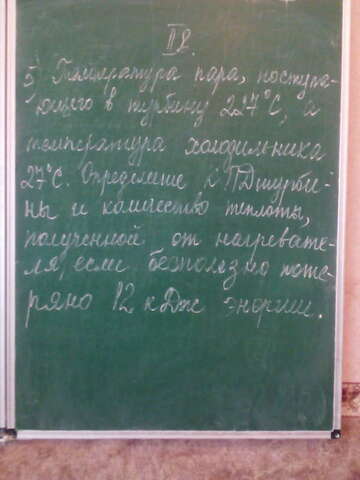 II В.
5) Температура пара, поступа-
ющего в турбину 227°С, а
температура холодильника
27°С. Определите КПД турби-
ны и количество теплоты,
полученной от нагревате-
ля, если бесполезно поте-
ряно 12 кДж энергии.